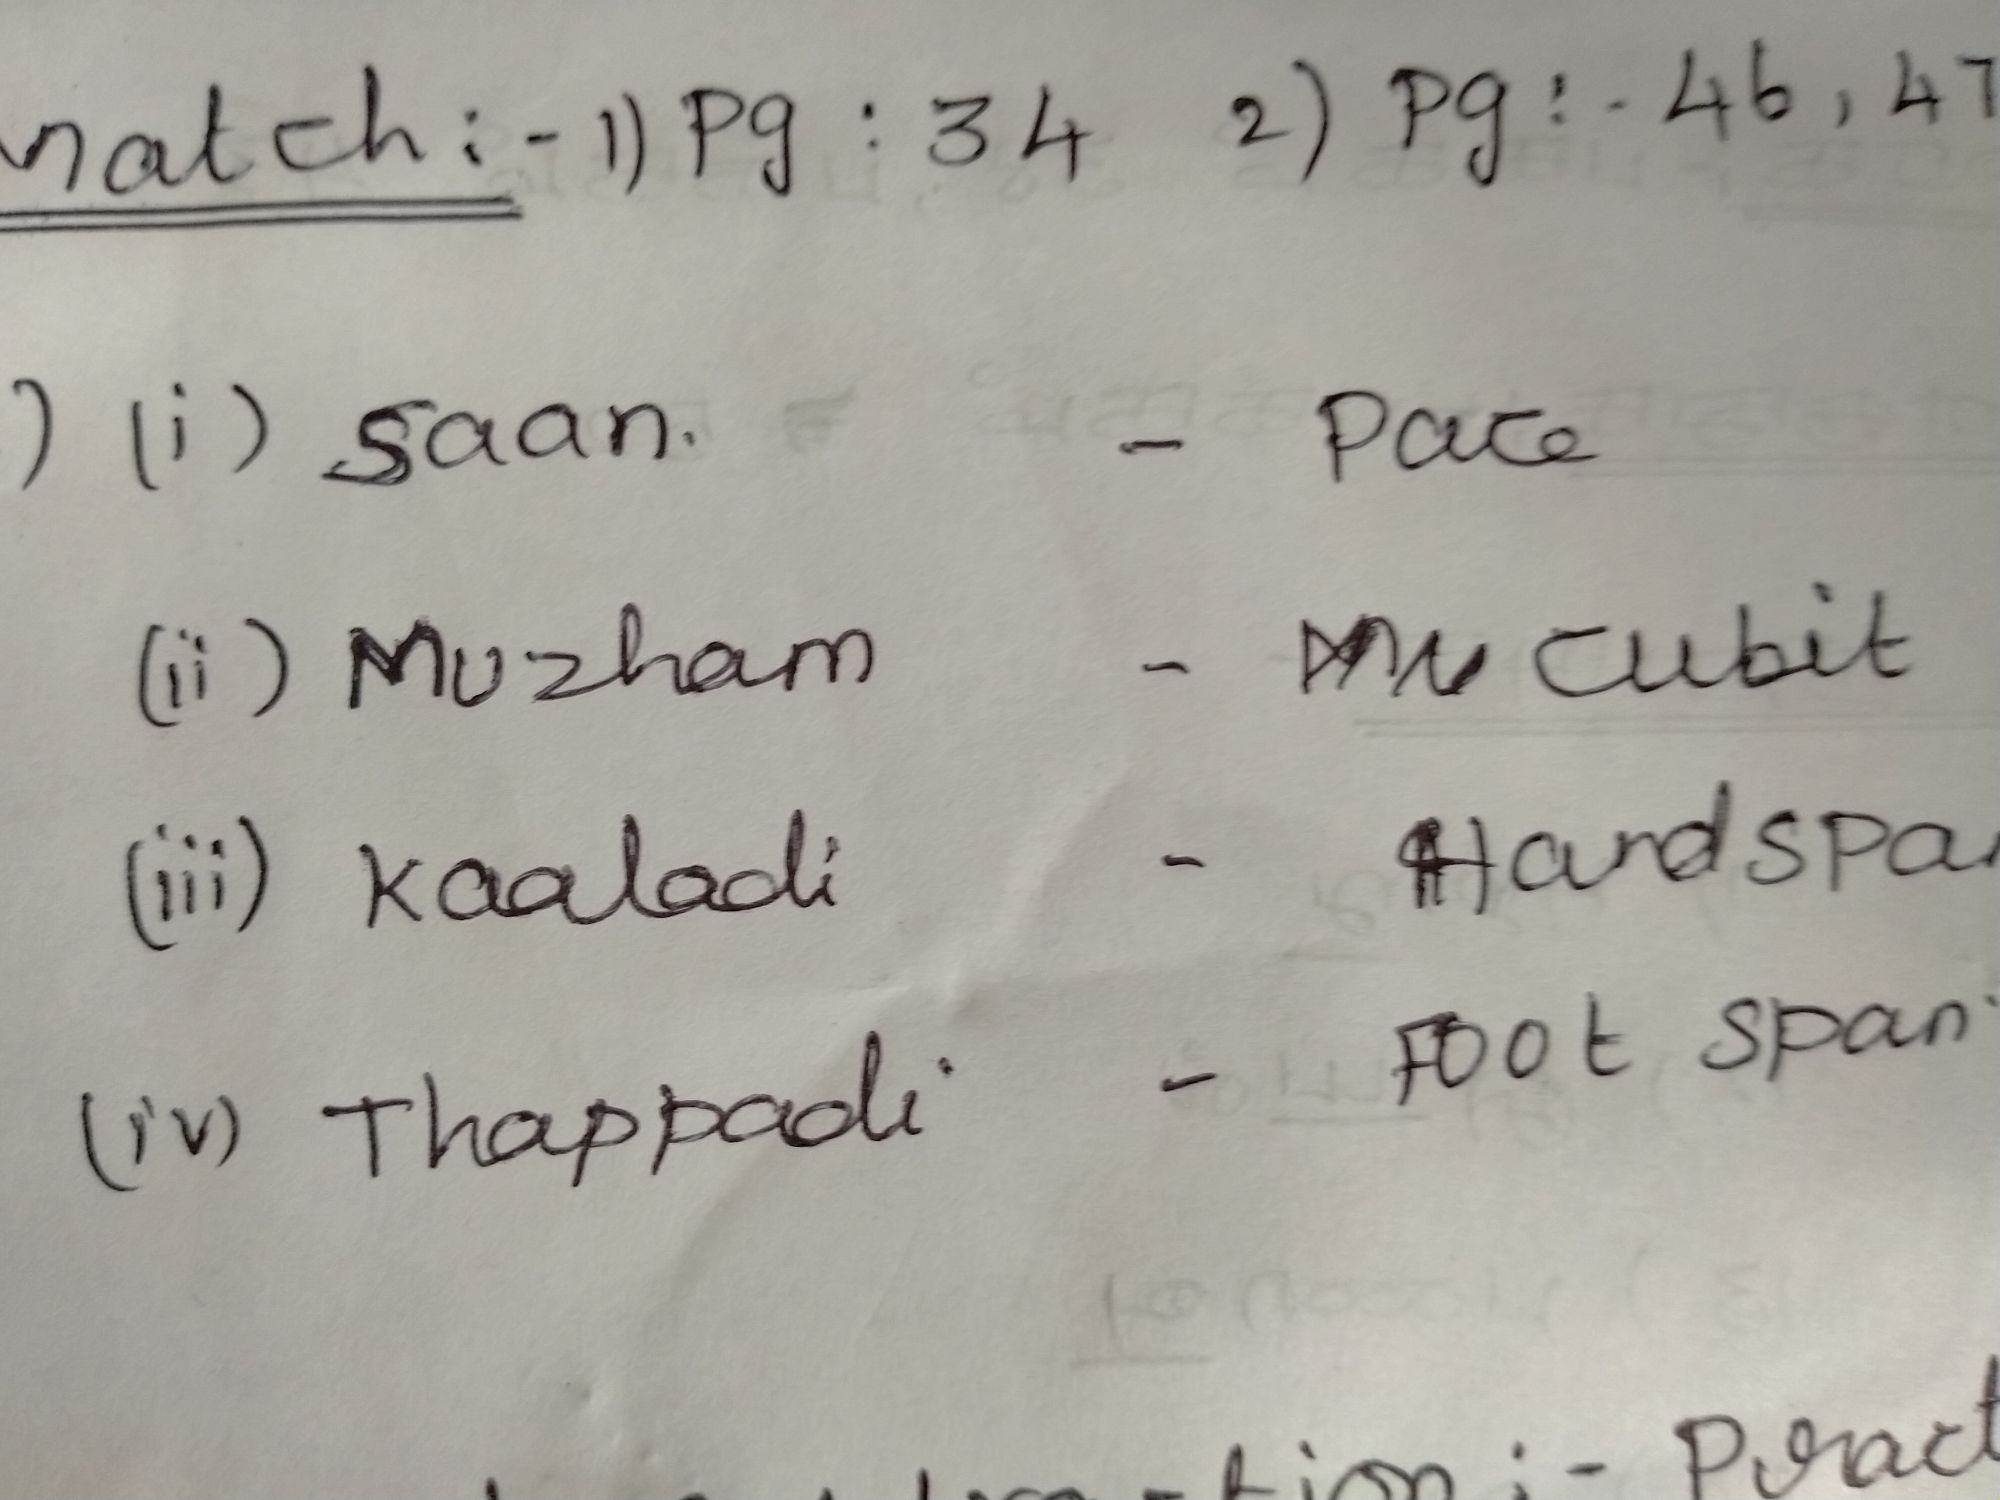 match :- 1) Pg : 34 2) Pg :- 46, 47
) (i) Saan. - Pace
(ii) Muzham - Cubit
(iii) Kaaladi - Hand spa
(iv) Thappadi - Foot span
:- Pract